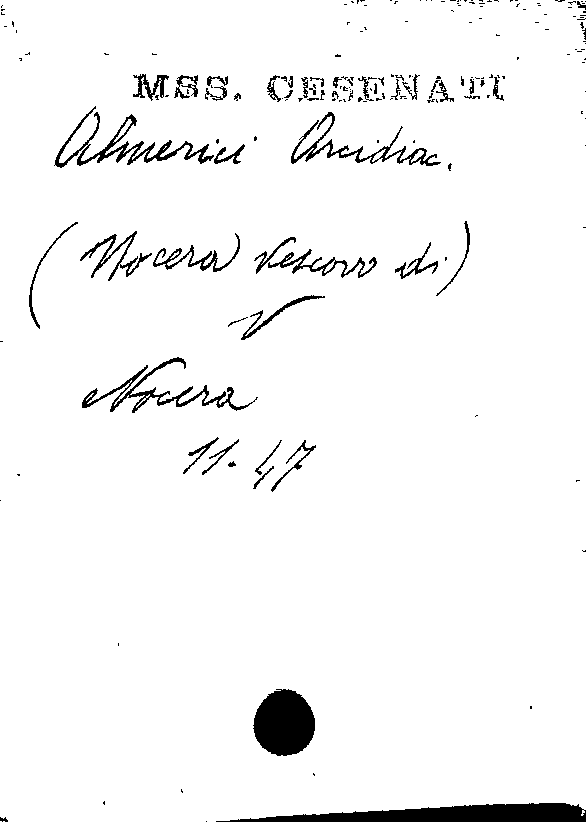 MSS. CESENATI
Almerici Arcidiac.
(Nocera Vescovo di)
V
Nocera
11. 47